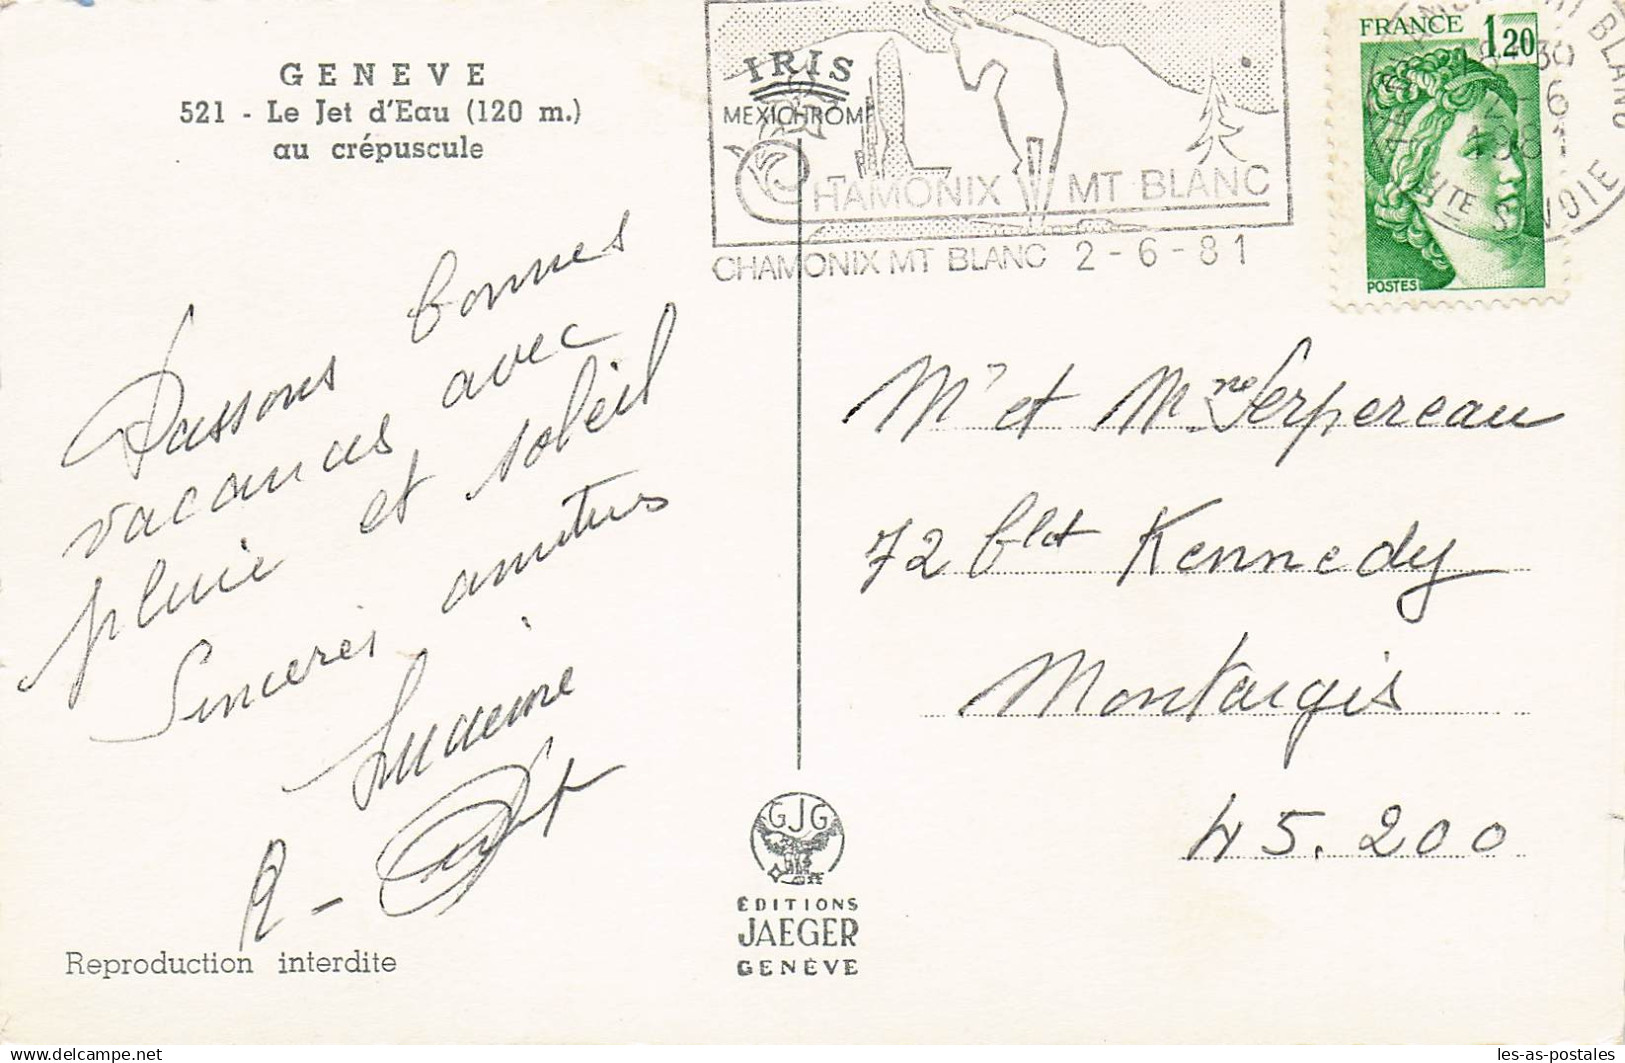 GENEVE
521 - Le Jet d'Eau (120 m.)
au crépuscule
IRIS
MEXICHROME
CHAMONIX MT BLANC
CHAMONIX MT BLANC 2-6-81
FRANCE 1,20
POSTES
MONT BLANC
HTE SAVOIE
1981
Passons bonnes
vacances avec
pluie et soleil
Sincères amitiés
Lucienne
R -
Mr et Mme Serpereau
72 blt Kennedy
Montargis
45.200
GJG
ÉDITIONS
JAEGER
GENÈVE
Reproduction interdite
les-as-postales